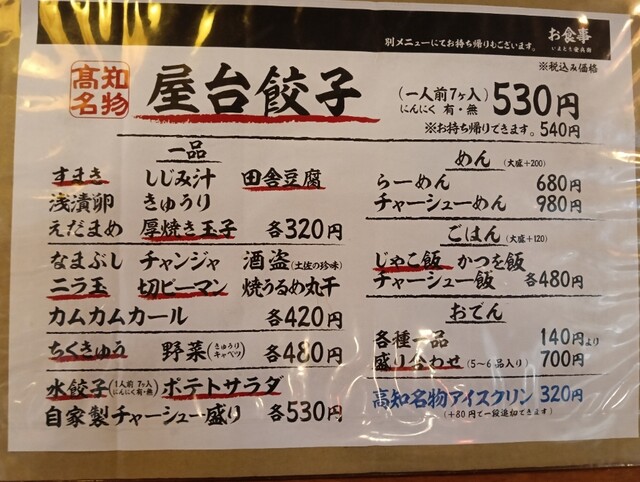 別メニューにてお持ち帰りもございます。
お食事
※税込み価格
高知名物
屋台餃子
(一人前7ヶ入)
にんにく 有・無
530円
※お持ち帰りできます。540円
一品
すまき しじみ汁 田舎豆腐
浅漬卵 きゅうり
えだまめ 厚焼き玉子 各320円
なまぶし チャンジャ 酒盗(土佐の珍味)
ニラ玉 切ピーマン 焼うるめ丸干
カムカムカール 各420円
ちくきゅう 野菜(きゅうり キャベツ) 各480円
水餃子(1人前 7ヶ入 にんにく有・無) ポテトサラダ
自家製チャーシュー盛り 各530円
めん(大盛+200)
らーめん 680円
チャーシューめん 980円
ごはん(大盛+120)
じゃこ飯 かつを飯
チャーシュー飯 各480円
おでん
各種一品 140円より
盛り合わせ(5~6品入り) 700円
高知名物アイスクリン 320円
(+80円で一段追加できます)